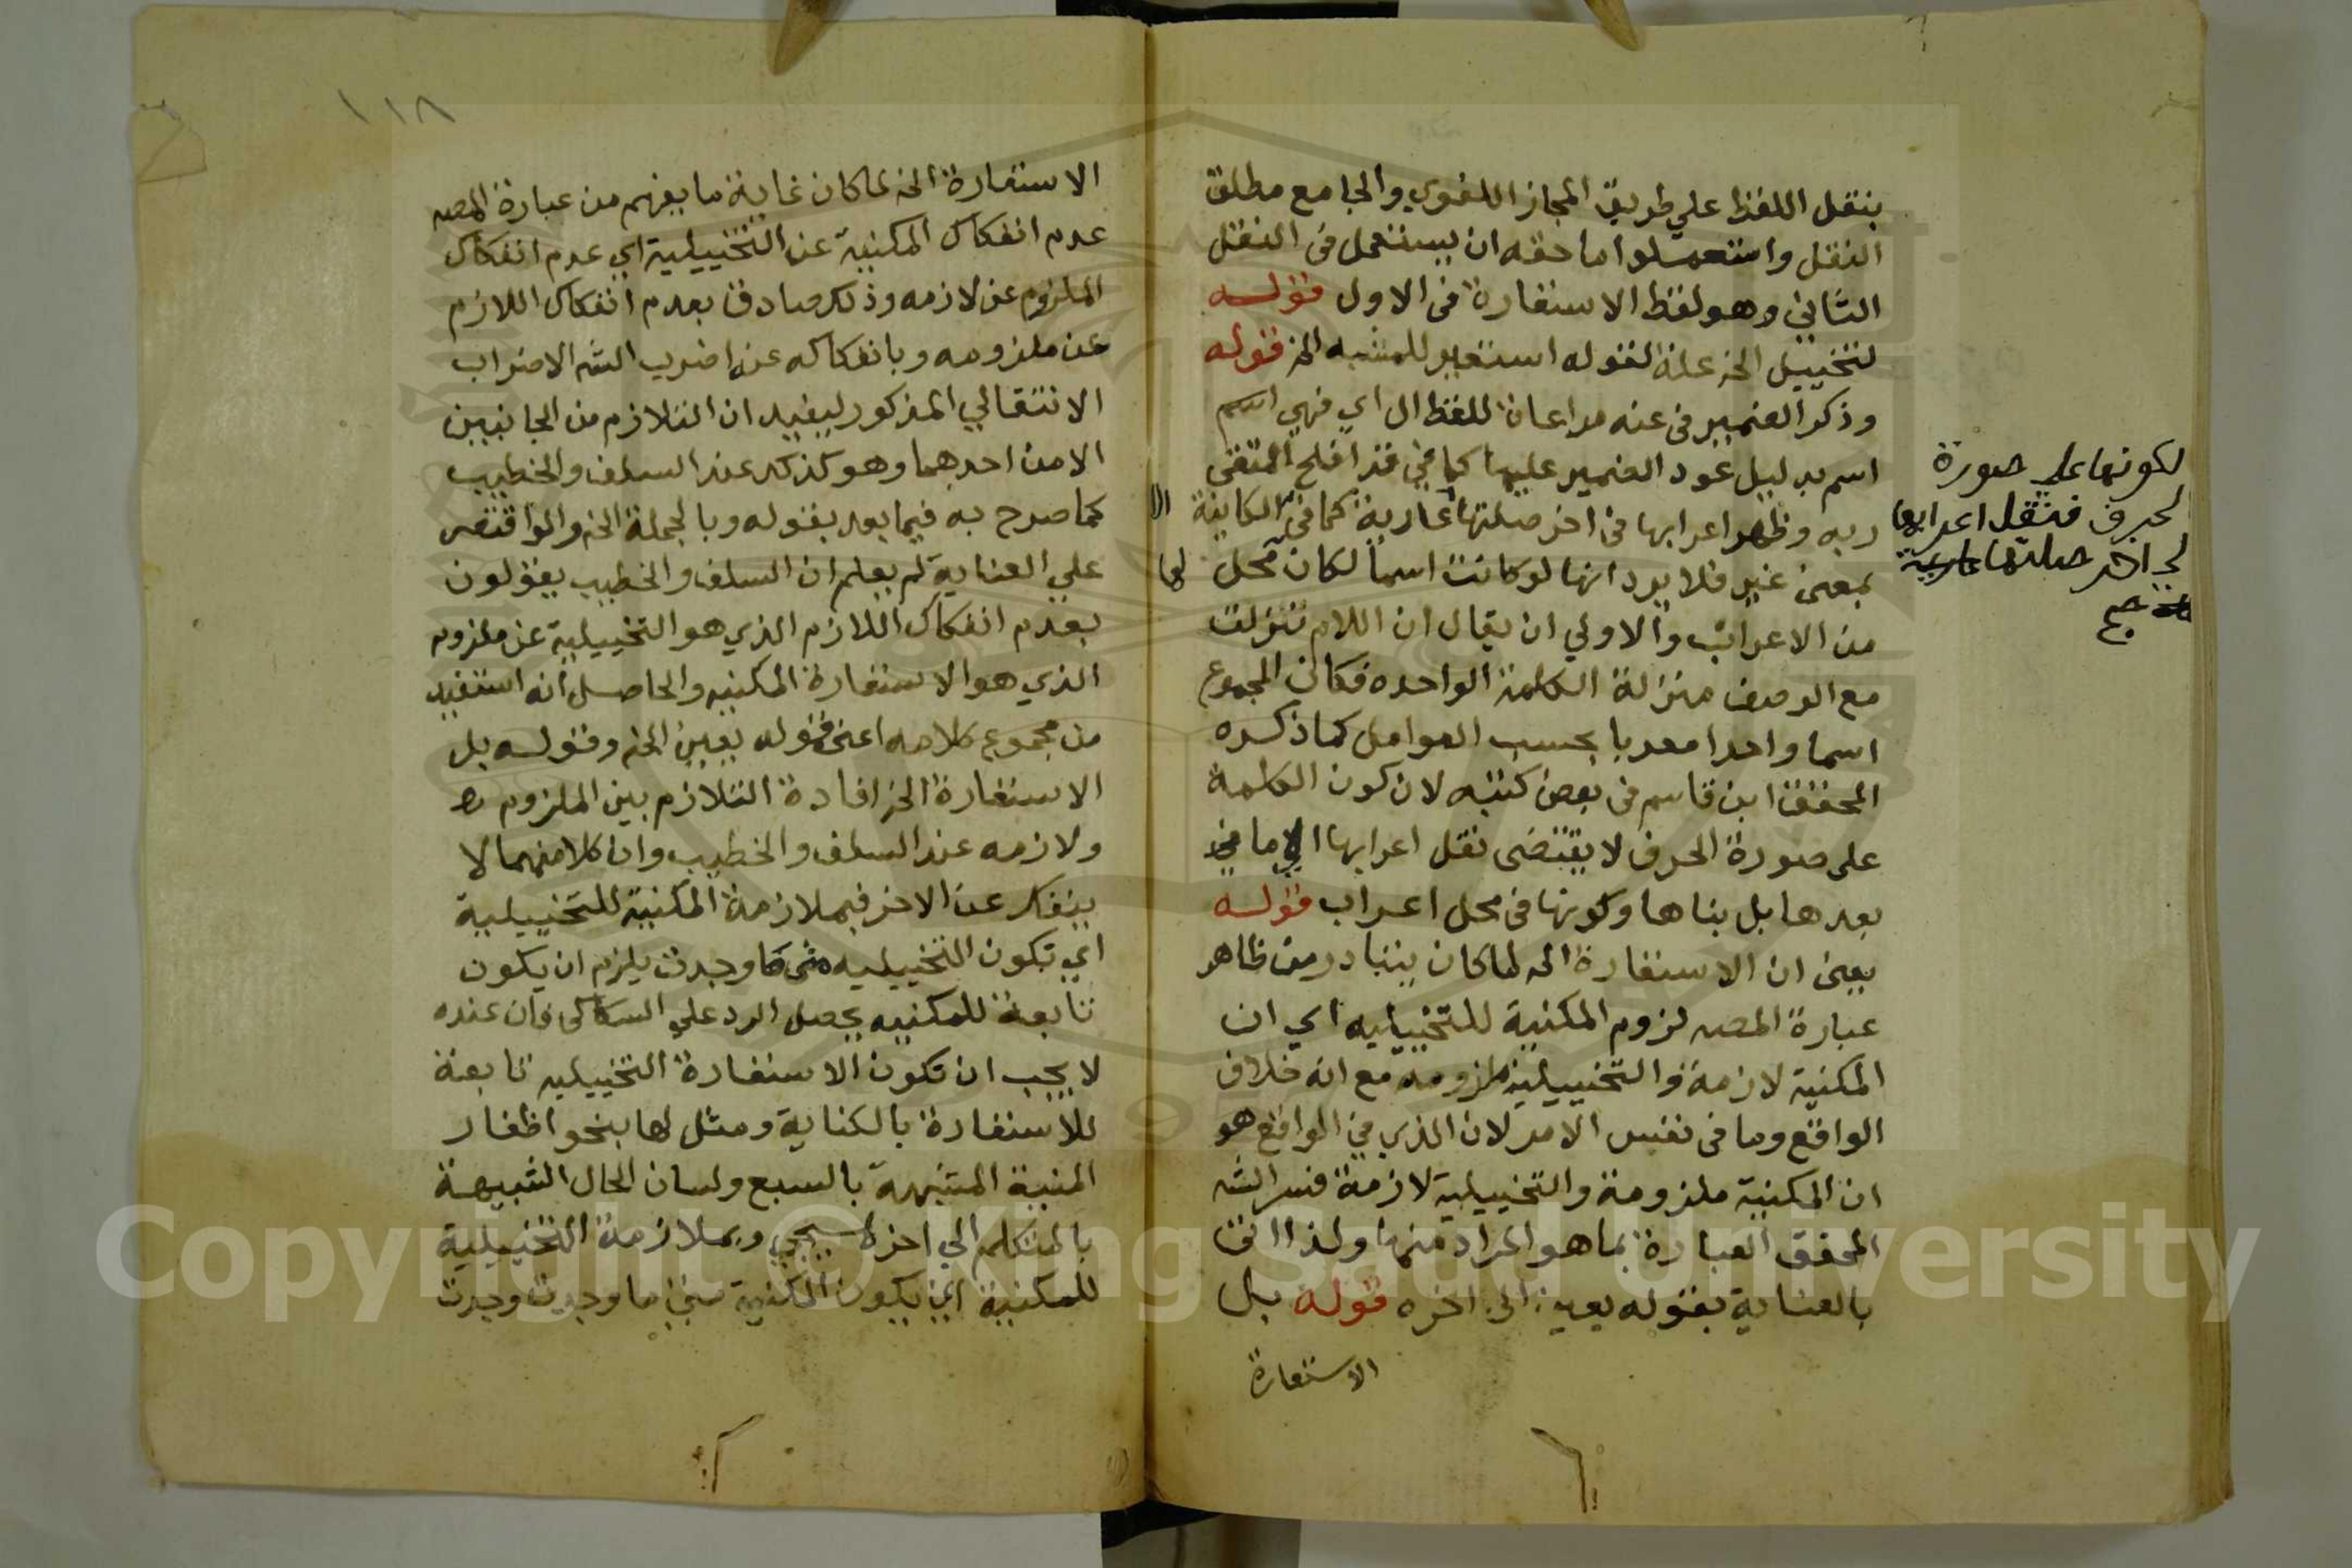 بنقل اللفظ علي طريق المجاز اللغوي والجامع مطلق
النقل واستعملوا ما حقه ان يستعمل في النقل
الثاني وهو لفظ الاستعارة في الاول قوله
لتخييل الخ علة لقوله استعير للمشبه الخ قوله
وذكر الضمير في عنه مراعاة للفظ ال اي فهي اسم
اسم بدليل عود الضمير عليها كما في قد افلح المتقي
ربه وظهر اعرابها في اخر صلتها عارية كما في الا الكاينة
بمعني غير فلا يرد انها لو كانت اسما لكان لها محل
من الاعراب والاولي ان يقال ان اللام تنزلت
مع الوصف منزلة الكلمة الواحده فكان المجموع
اسما واحدا معربا بحسب العوامل كما ذكره
المحقق ابن قاسم في بعض كتبه لان كون الكلمة
علي صورة الحرف لا يقتضي نقل اعرابها الي ما في
بعدها بل بناها وكونها في محل اعراب قوله
يعني ان الاستعارة الخ لما كان يتبادر من ظاهر
عبارة المصه لزوم المكنية للتخييليه اي ان
المكنية لازمة والتخييلية ملزومه مع انه خلاف
الواقع وما في نفس الامر لان الذي في الواقع هو
ان المكنية ملزومة والتخييلية لازمة فسر الشه
المحقق العبارة بما هو المراد منها ولذا اتي
بالعناية بقوله يعني الي اخره قوله بل
الاستعارة
لكونها علي صورة
الحرف فنقل اعرابها
الي اخر صلتها عارية
صح
١١٨
الاستعارة الخ لما كان غاية ما يفهم من عبارة المصه
عدم انفكاك المكنية عن التخييلية اي عدم انفكاك
الملزوم عن لازمه وذلك صادق بعدم انفكاك اللازم
عن ملزومه وبانفكاكه عنه اضرب الشه الاضراب
الانتقالي المذكور ليفيد ان التلازم من الجانبين
لا من احدهما وهو كذلك عند السلف والخطيب
كما صرح به فيما بعد بقوله وبالجملة الخ ولو اقتصر
علي العناية لم يعلم ان السلف والخطيب يقولون
بعدم انفكاك اللازم الذي هو التخييلية عن ملزومه
الذي هو الاستعارة المكنيه والحاصل انه استفيد
من مجموع كلامه اعني قوله يعني الخ وقوله بل
الاستعارة الخ افادة التلازم بين الملزوم
ولازمه عند السلف والخطيب وان كلا منهما لا
ينفك عن الاخر فبملازمة المكنية للتخييلية
اي تكون التخييليه متي ما وجدت يلزم ان يكون
تابعة للمكنيه يحصل الرد علي السكاكي فان عنده
لا يجب ان تكون الاستعارة التخييليه تابعة
للاستعارة بالكناية ومثل لها بنحو اظفار
المنية المشبهة بالسبع ولسان الحال الشبيهة
بالمتكلم الي اخر ما سيجي وبملازمة التخييلية
للمكنية اي يكون المكنية متي ما وجدت وجدت
Copyright © King Saud University